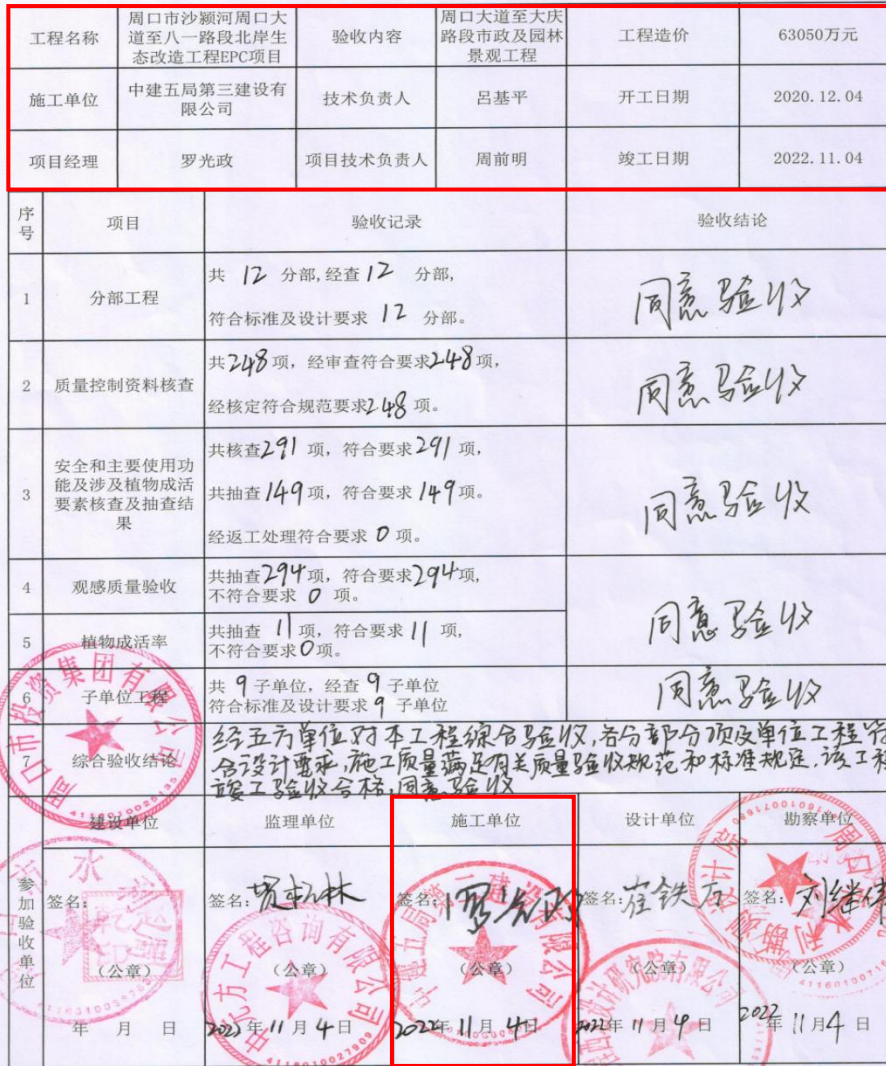 工程名称
周口市沙颍河周口大
道至八一路段北岸生
态改造工程EPC项目
验收内容
周口大道至大庆
路段市政及园林
景观工程
工程造价
63050万元
施工单位
中建五局第三建设有
限公司
技术负责人
吕基平
开工日期
2020.12.04
项目经理
罗光政
项目技术负责人
周前明
竣工日期
2022.11.04
序
号
项目
验收记录
验收结论
1
分部工程
共 12 分部,经查 12 分部,
符合标准及设计要求 12 分部。
同意验收
2
质量控制资料核查
共248项，经审查符合要求248项，
经核定符合规范要求248项。
同意验收
3
安全和主要使用功
能及涉及植物成活
要素核查及抽查结
果
共核查291项，符合要求291项，
共抽查149项，符合要求149项。
经返工处理符合要求 0 项。
同意验收
4
观感质量验收
共抽查294项，符合要求294项，
不符合要求 0 项。
5
植物成活率
共抽查 11 项，符合要求 11 项，
不符合要求0项。
同意验收
6
子单位工程
共 9 子单位，经查 9 子单位
符合标准及设计要求 9 子单位
同意验收
7
综合验收结论
经五方单位对本工程综合验收,各分部分项及单位工程符
合设计要求,施工质量满足有关质量验收规范和标准规定,该工程
竣工验收合格,同意验收
参
加
验
收
单
位
建设单位
监理单位
施工单位
设计单位
勘察单位
签名:
签名:
签名: 罗光政
签名:
签名:
(公章)
(公章)
(公章)
(公章)
(公章)
年 月 日
2022年 11月 4日
2022年 11月 4日
2022年 11月 4日
2022年 11月 4日
周口市投资集团有限公司